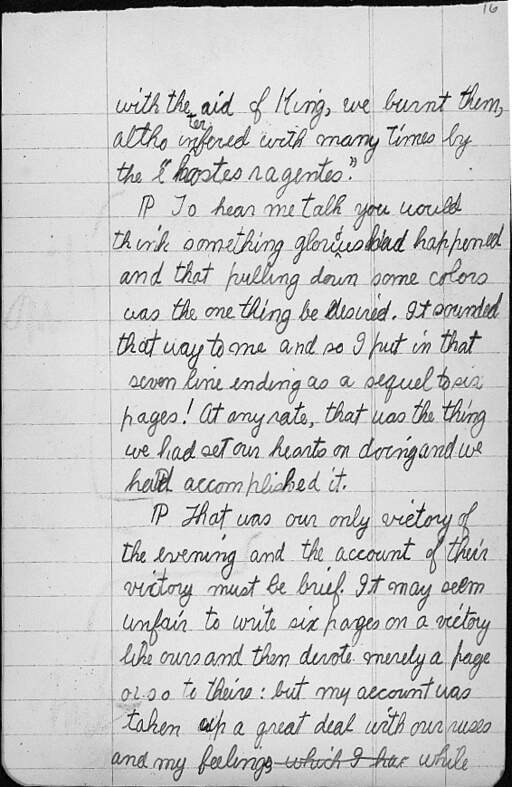 16
with the aid of King, we burnt them,
altho interfered with many times by
the "hostes ragentes."
¶ To hear me talk you would
think something glorious had happened
and that pulling down some colors
was the one thing be desired. It sounded
that way to me and so I put in that
seven line ending as a sequel to six
pages! At any rate, that was the thing
we had set our hearts on doing and we
had accomplished it.
¶ That was our only victory of
the evening and the account of their
victory must be brief. It may seem
unfair to write six pages on a victory
like ours and then devote merely a page
or so to theirs: but my account was
taken up a great deal with our ruses
and my feelings which I har while